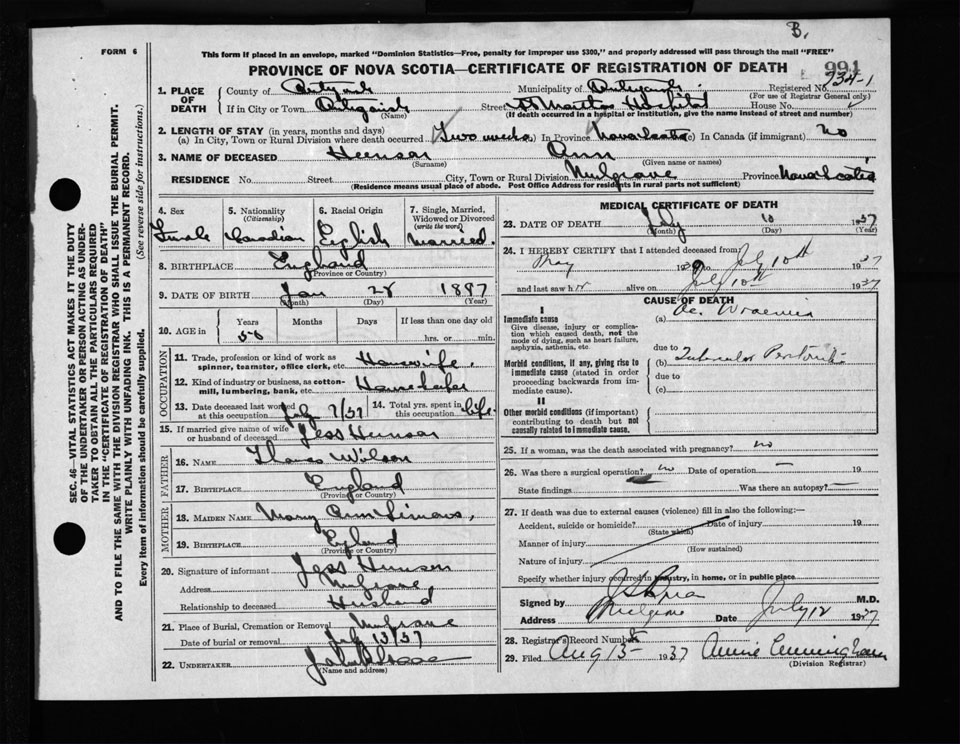 B.
FORM 6
This form if placed in an envelope, marked "Dominion Statistics—Free, penalty for improper use $300," and properly addressed will pass through the mail "FREE"
PROVINCE OF NOVA SCOTIA—CERTIFICATE OF REGISTRATION OF DEATH
991
934-1
1. PLACE OF DEATH
County of
Municipality of
Registered No.
(For use of Registrar General only)
If in City or Town
(Name)
Street St Martha's Hospital House No.
(If death occurred in a hospital or institution, give the name instead of street and number)
2. LENGTH OF STAY (in years, months and days)
(a) In City, Town or Rural Division where death occurred Two weeks (b) In Province Nova Scotia (c) In Canada (if immigrant) no
3. NAME OF DECEASED Ann
(Surname) (Given name or names)
RESIDENCE No. Street City, Town or Rural Division Mulgrave Province Nova Scotia
(Residence means usual place of abode. Post Office Address for residents in rural parts not sufficient)
4. Sex Female
5. Nationality (Citizenship) Canadian
6. Racial Origin English
7. Single, Married, Widowed or Divorced (write the word) Married.
8. BIRTHPLACE England
(Province or Country)
9. DATE OF BIRTH Jan 28 1887
(Month) (Day) (Year)
10. AGE in Years Months Days If less than one day old
50 hrs. or min.
OCCUPATION
11. Trade, profession or kind of work as spinner, teamster, office clerk, etc. Housewife
12. Kind of industry or business, as cotton-mill, lumbering, bank, etc. Housekeeper
13. Date deceased last worked at this occupation July 7/37
14. Total yrs. spent in this occupation life
15. If married give name of wife or husband of deceased Jess
FATHER
16. NAME Wilson
17. BIRTHPLACE England
(Province or Country)
MOTHER
18. MAIDEN NAME Mary Ann Simons,
19. BIRTHPLACE England
(Province or Country)
20. Signature of informant Jess
Address Mulgrave
Relationship to deceased Husband
21. Place of Burial, Cremation or Removal Mulgrave
Date of burial or removal July 13/37
22. UNDERTAKER
(Name and address)
MEDICAL CERTIFICATE OF DEATH
23. DATE OF DEATH July 10 1937
(Month) (Day) (Year)
24. I HEREBY CERTIFY that I attended deceased from
May 19 to July 10th 1937
and last saw h er alive on July 10th 1937
CAUSE OF DEATH
I
Immediate cause
Give disease, injury or complication which caused death, not the mode of dying, such as heart failure, asphyxia, asthenia, etc.
(a) Ac. Uraemia
due to
Morbid conditions, if any, giving rise to immediate cause (stated in order proceeding backwards from immediate cause).
(b) Tubercular
due to
(c)
II
Other morbid conditions (if important) contributing to death but not causally related to immediate cause.
25. If a woman, was the death associated with pregnancy? no
26. Was there a surgical operation? no Date of operation — 19
State findings Was there an autopsy? —
27. If death was due to external causes (violence) fill in also the following:—
Accident, suicide or homicide? Date of injury 19
(State which)
Manner of injury
(How sustained)
Nature of injury
Specify whether injury occurred in industry, in home, or in public place
Signed by M.D.
Address Mulgrave Date July 12 1937
28. Registrar's Record Number
29. Filed Aug 15 1937 Annie Cunningham
(Division Registrar)
SEC. 46—VITAL STATISTICS ACT MAKES IT THE DUTY
OF THE UNDERTAKER OR PERSON ACTING AS UNDER-
TAKER TO OBTAIN ALL THE PARTICULARS REQUIRED
IN THE "CERTIFICATE OF REGISTRATION OF DEATH"
AND TO FILE THE SAME WITH THE DIVISION REGISTRAR WHO SHALL ISSUE THE BURIAL PERMIT.
WRITE PLAINLY WITH UNFADING INK. THIS IS A PERMANENT RECORD.
(See reverse side for instructions.)
Every item of information should be carefully supplied.